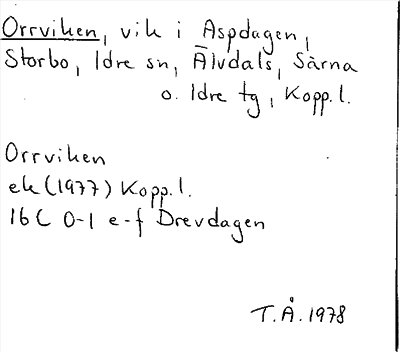 Orrviken, vik i Aspdagen,
Storbo, Idre sn, Älvdals, Särna
o. Idre tg, Kopp. l.
Orrviken
ek (1977) Kopp. l.
16 C 0-1 e-f Drevdagen
T. Å. 1978